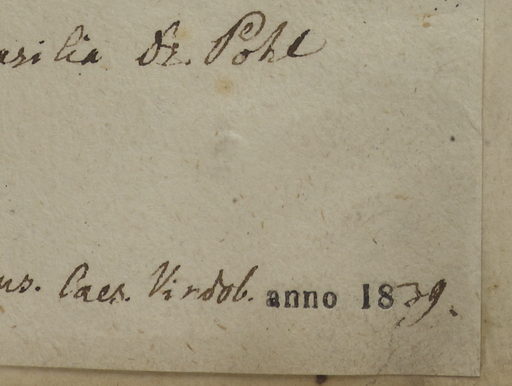 asilia Dr. Pohl
us. Caes. Vindob. anno 1839.